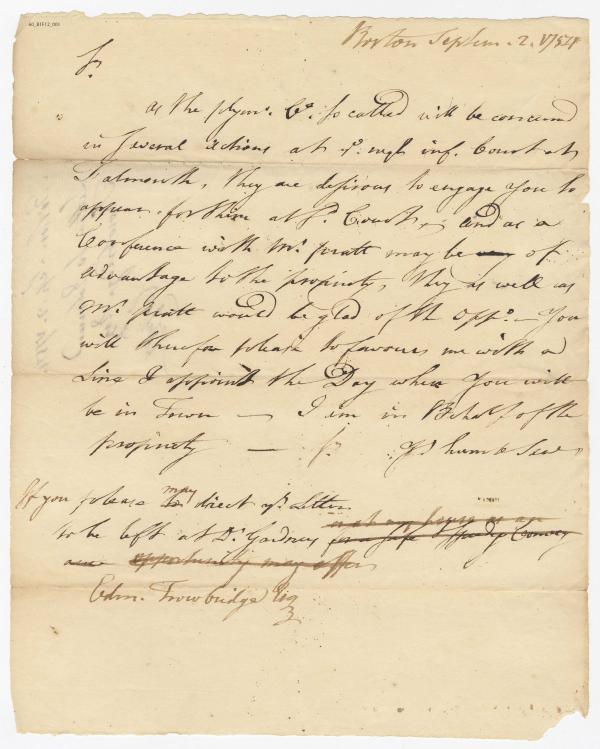 60_B1F12_001
Boston Septem. 2. 1754
Sr.
as the plym. Co. so called will be concerned
in several actions at ye. next inf. Court at
Falmouth, they are desirous to engage you to
appear for them at sd. Court, and as a
Conference with Mr. pratt may be of
advantage to the propriety, they as well as
Mr. pratt would be glad of the oppo. — You
will therefore please to favour me with a
Line & appoint the Day when You will
be in Town — I am in Behalf of the
propriety — Sr. Yr. humble Serv
If you please may direct yr. Letter
to be left at Dr. Gardners for a safe & speedy Convey
opportunity may offer
Edm. Trowbridge Esq